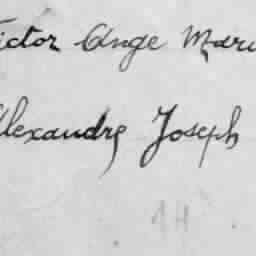 ictor Ange Mari
Alexandre Joseph